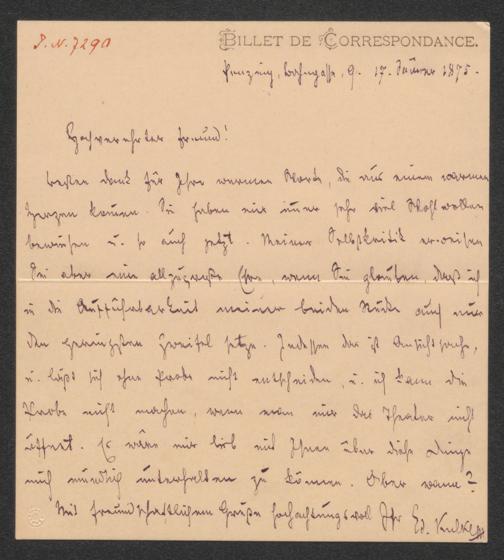 I.N. 7290
BILLET DE CORRESPONDANCE.
Penzing, Bahngasse, 9. 17. Jänner 1875.
Hochverehrter Freund!
Besten Dank für Ihre warmen Worte, die aus einem warmen
Herzen kommen. Sie haben mir immer sehr viel Wohlwollen
bewiesen u. so auch jetzt. Meiner Selbstkritik erweisen
Sie aber eine allzugroße Ehre, wenn Sie glauben, daß ich
in die Aufführbarkeit meiner beiden Stücke auch nur
den geringsten Zweifel setze. Indessen das ist Ansichtsache,
u. läßt sich ohne Probe nicht entscheiden, u. ich kann die
Probe nicht machen, wenn man mir das Theater nicht
öffnet. Es wäre mir lieb mit Ihnen über diese Dinge
mich mündlich unterhalten zu können. Aber wann?
Mit freundschaftlichem Gruße hochachtungsvoll Ihr Ed. Kulke